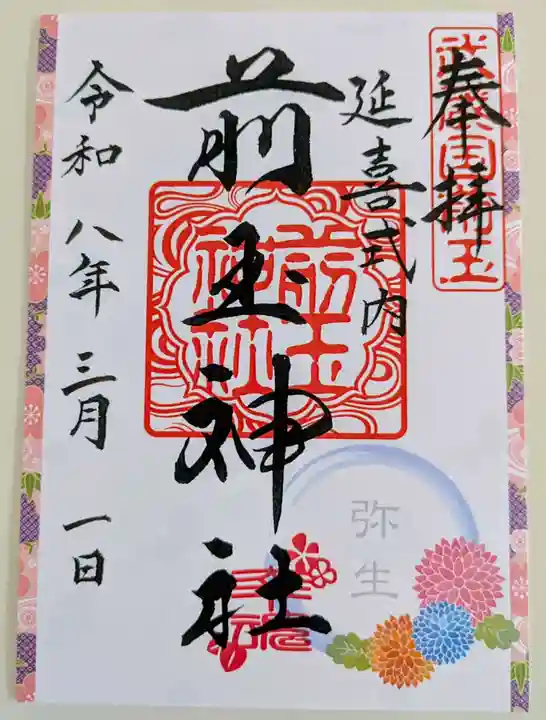 奉拝
武蔵国埼玉
延喜式内
前玉神社
前玉神社
令和八年三月一日
弥生